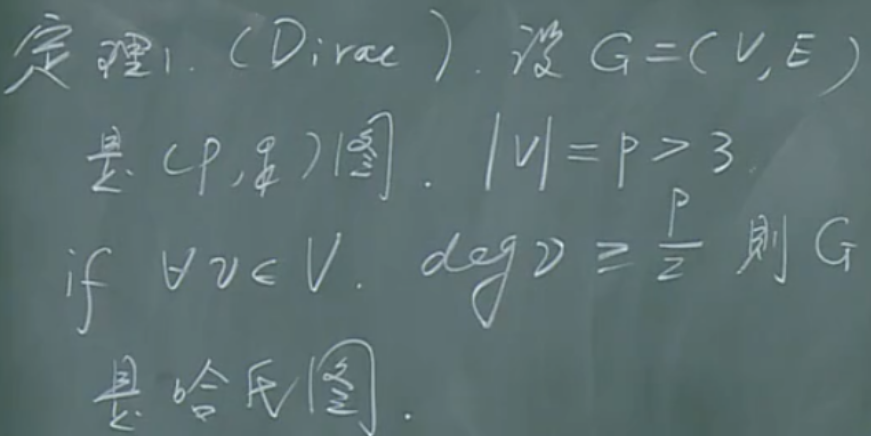 定理1. (Dirac). 设 G=(V,E)
是(p,q)图. |V|=p>3.
if ∀v∈V. deg v ≥ p/2 則 G
是哈氏图.